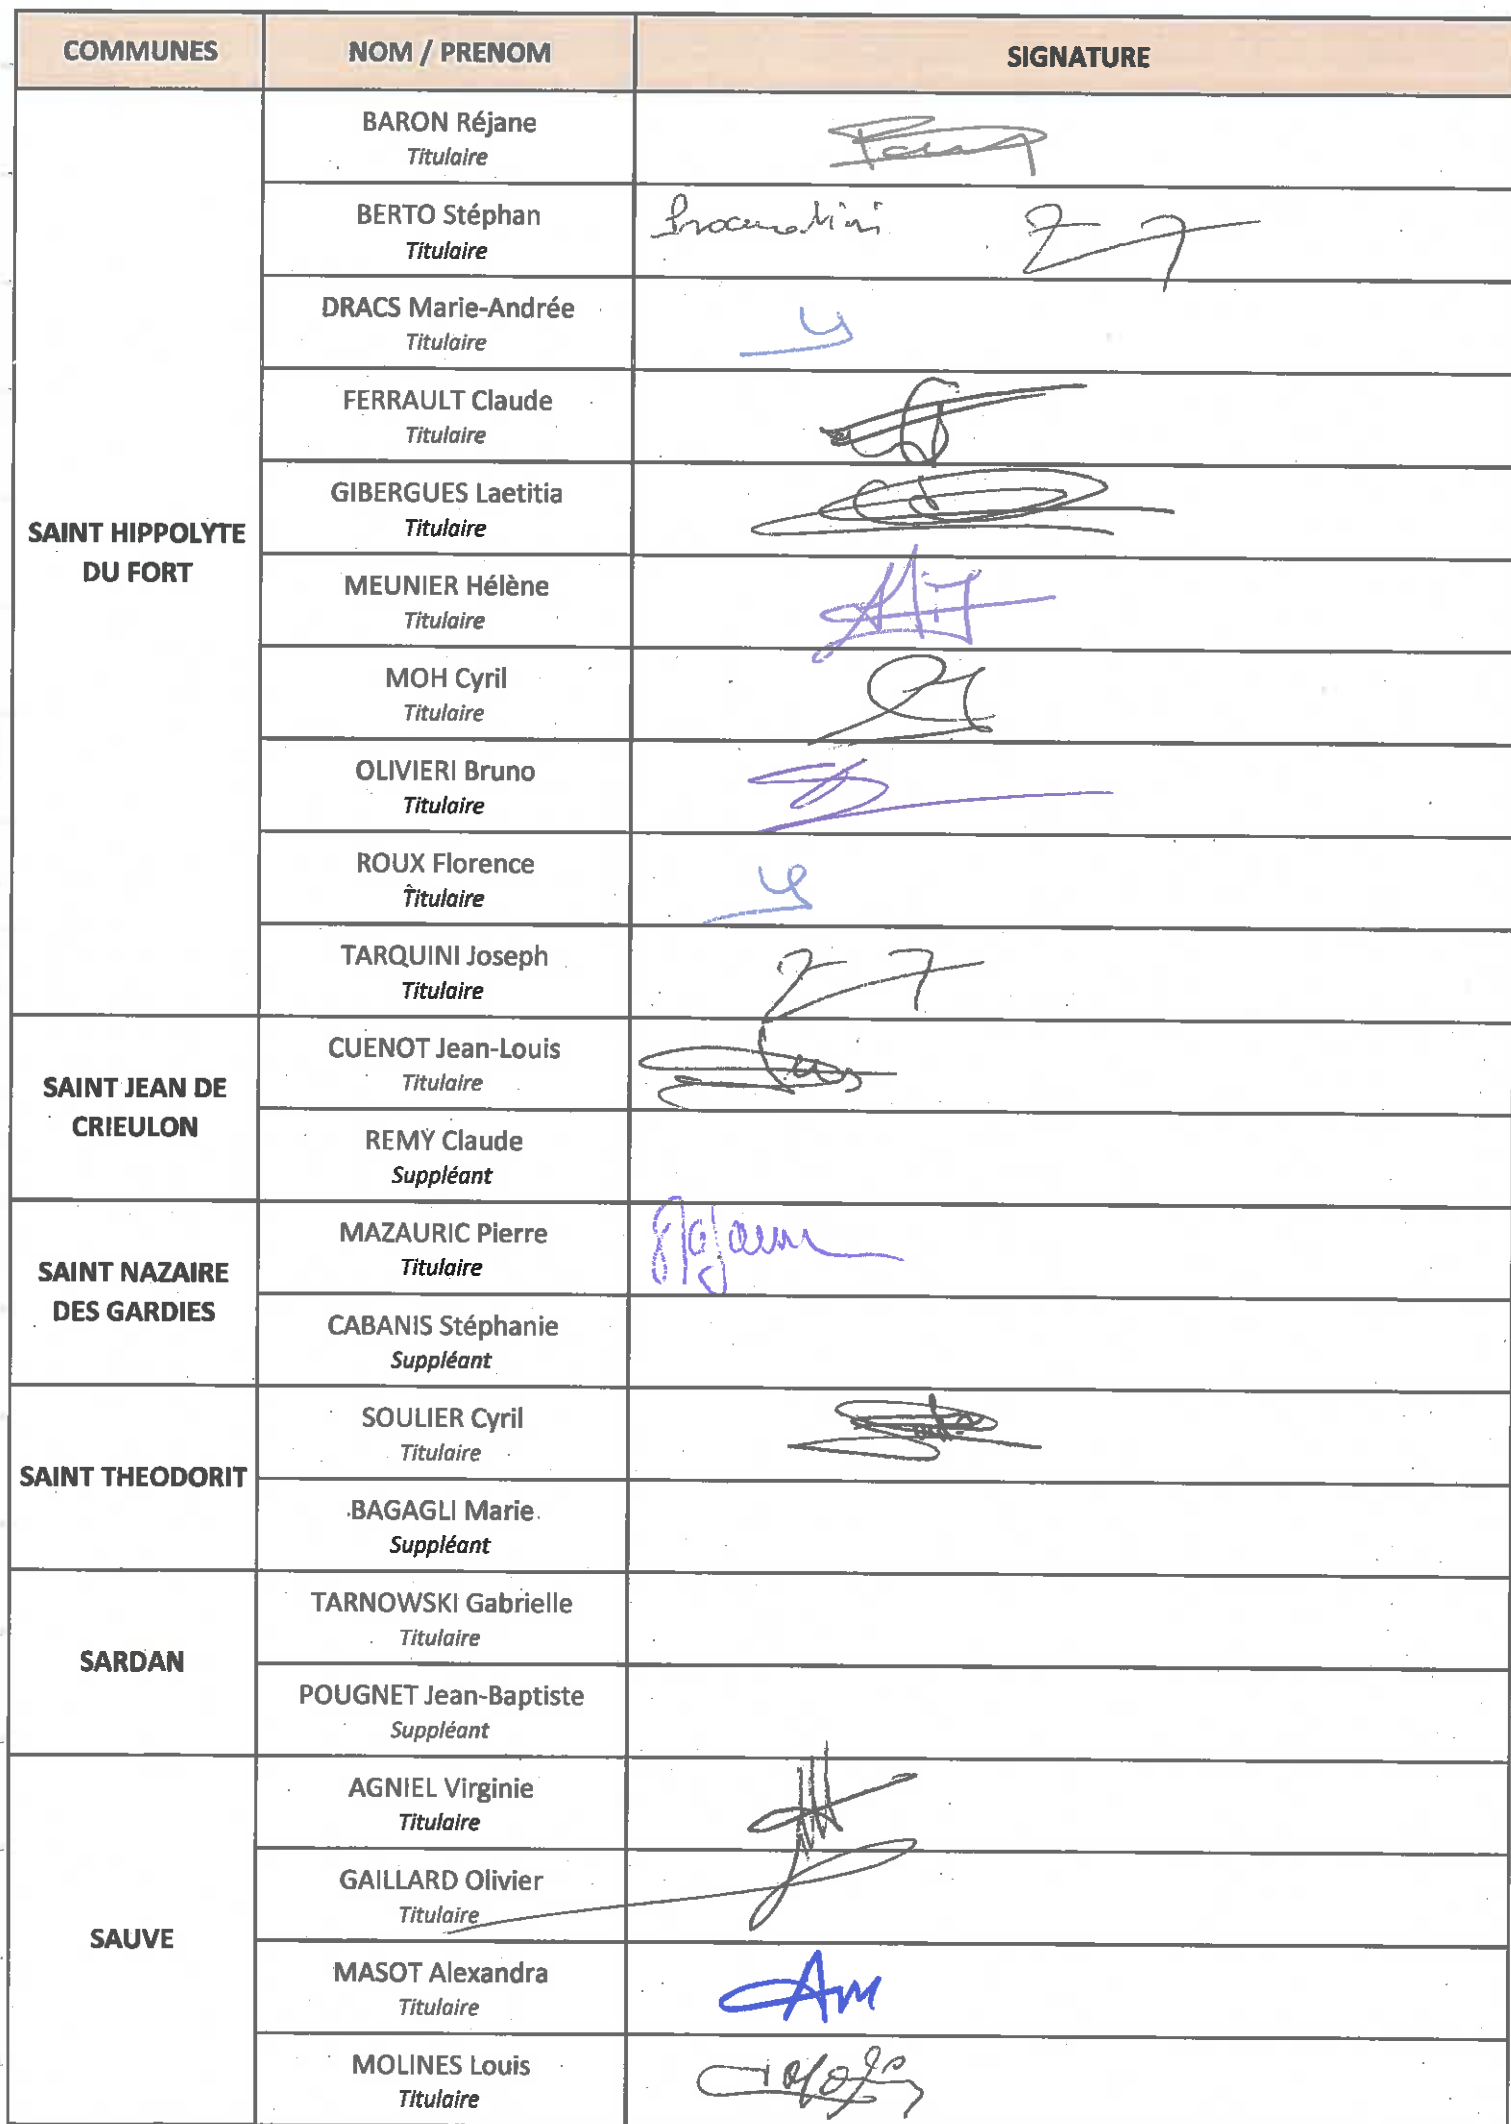 COMMUNES NOM / PRENOM SIGNATURE
SAINT HIPPOLYTE
DU FORT
BARON Réjane
Titulaire
BERTO Stéphan
Titulaire
DRACS Marie-Andrée
Titulaire
FERRAULT Claude
Titulaire
GIBERGUES Laetitia
Titulaire
MEUNIER Hélène
Titulaire
MOH Cyril
Titulaire
OLIVIERI Bruno
Titulaire
ROUX Florence
Titulaire
TARQUINI Joseph
Titulaire
SAINT JEAN DE
CRIEULON
CUENOT Jean-Louis
Titulaire
REMY Claude
Suppléant
SAINT NAZAIRE
DES GARDIES
MAZAURIC Pierre
Titulaire
CABANIS Stéphanie
Suppléant
SAINT THEODORIT
SOULIER Cyril
Titulaire
BAGAGLI Marie
Suppléant
SARDAN
TARNOWSKI Gabrielle
Titulaire
POUGNET Jean-Baptiste
Suppléant
SAUVE
AGNIEL Virginie
Titulaire
GAILLARD Olivier
Titulaire
MASOT Alexandra
Titulaire
AM
MOLINES Louis
Titulaire